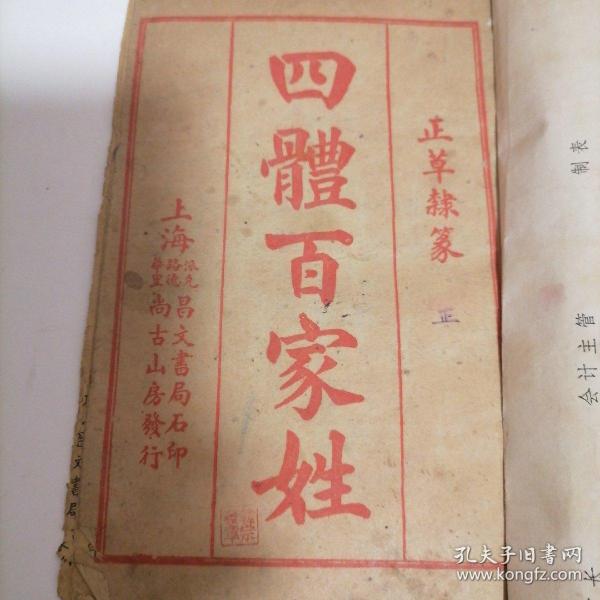 正草隸篆
正
四體百家姓
上海派克路德華里昌文書局石印
尚古山房發行
制表
会计主管
文書局
孔夫子旧书网
www.kongfz.com